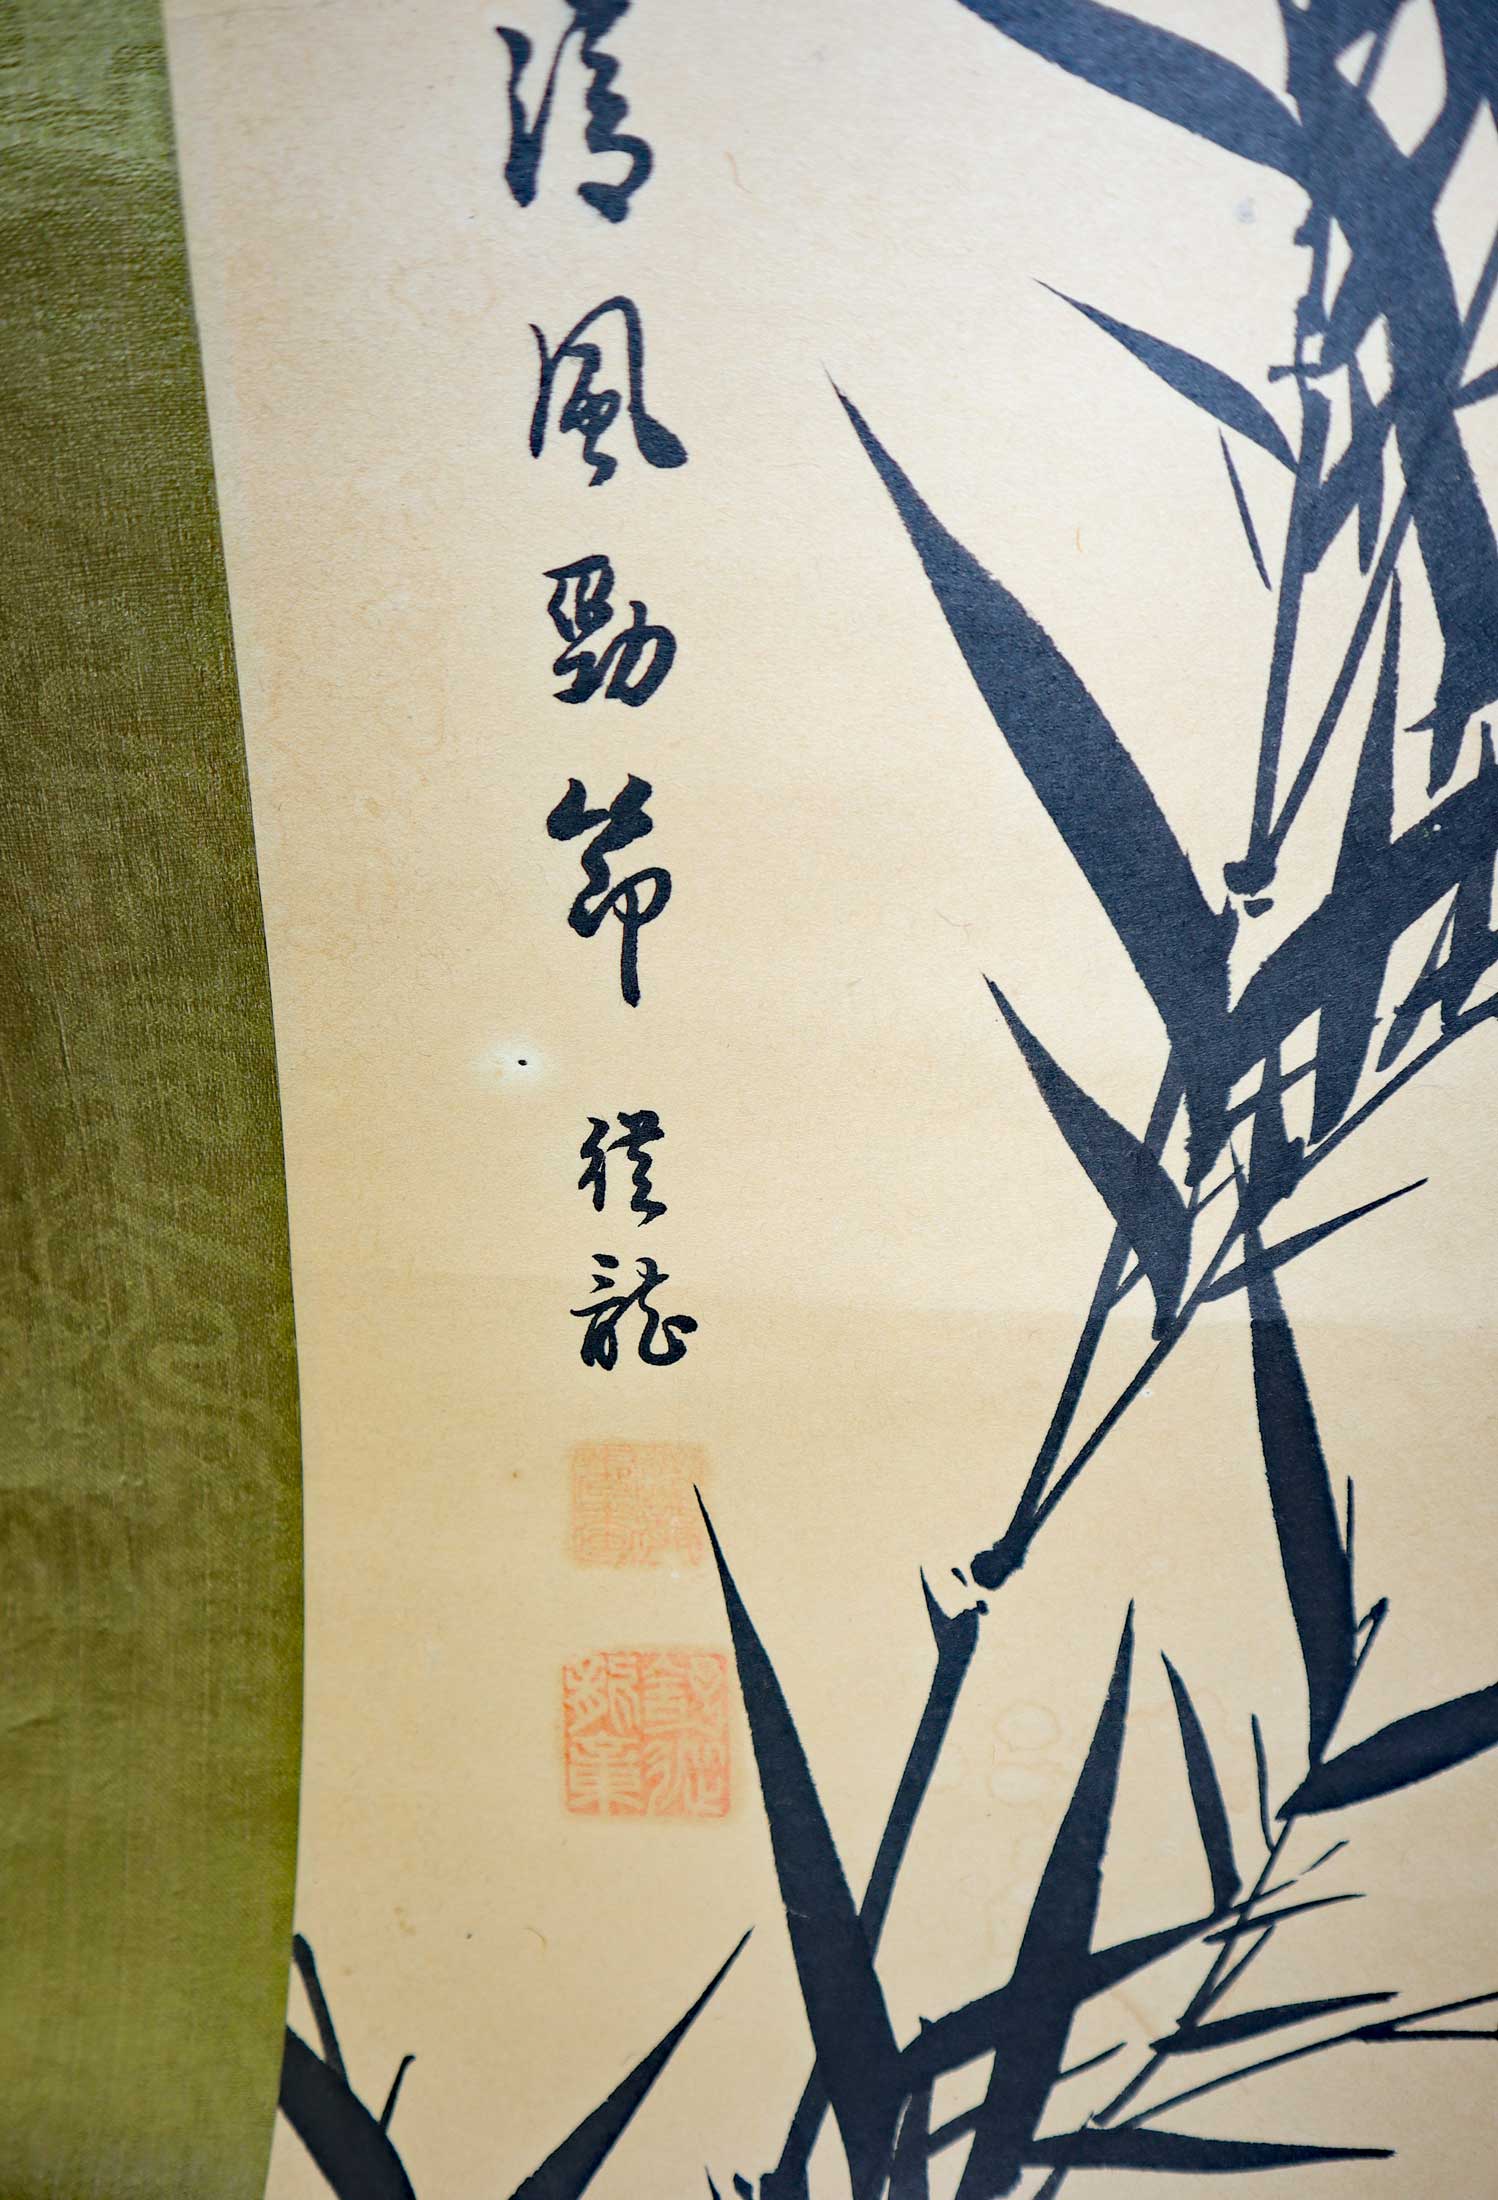 清風勁節
從龍